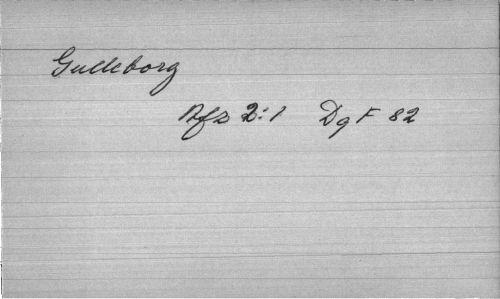 Gulleborg
Afz 2:1 DgF 82